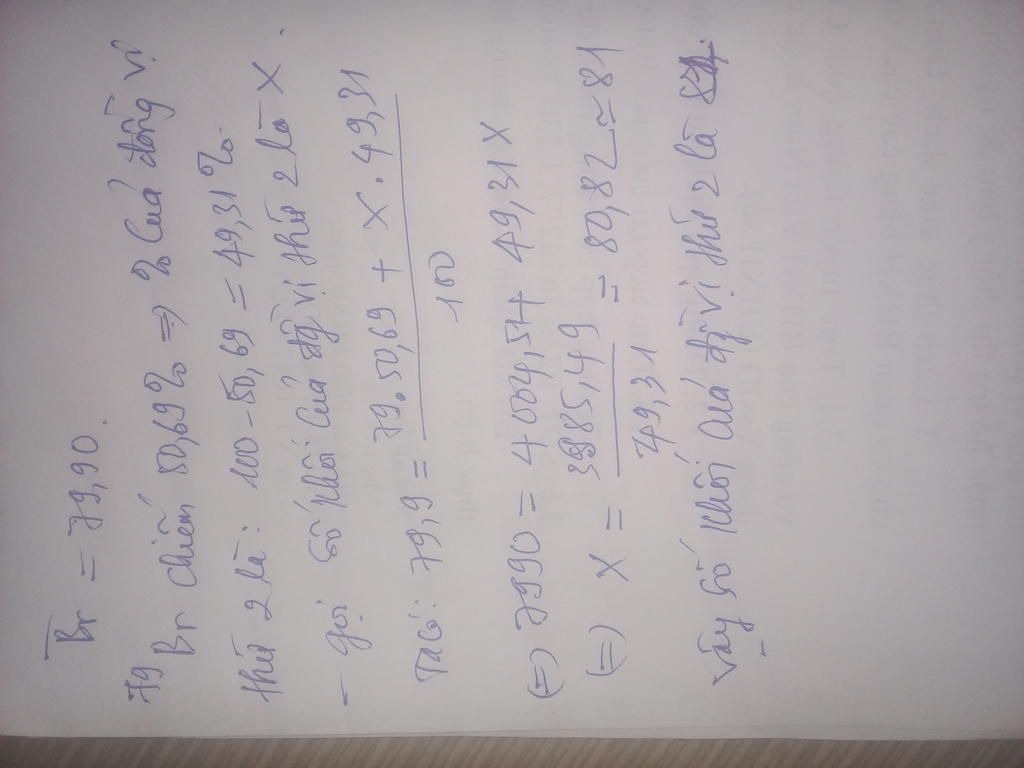 Br = 79,90.
79 Br chiếm 50,69% => % của đồng vị
thứ 2 là: 100 - 50,69 = 49,31%
- gọi số khối của đg vị thứ 2 là X.
Ta có: 79,9 = 79.50,69 + X.49,31
100
(=) 7990 = 4004,51 + 49,31X
(=) X = 3985,49 / 49,31 = 80,82 ≃ 81
Vậy số khối của đg vị thứ 2 là 81.